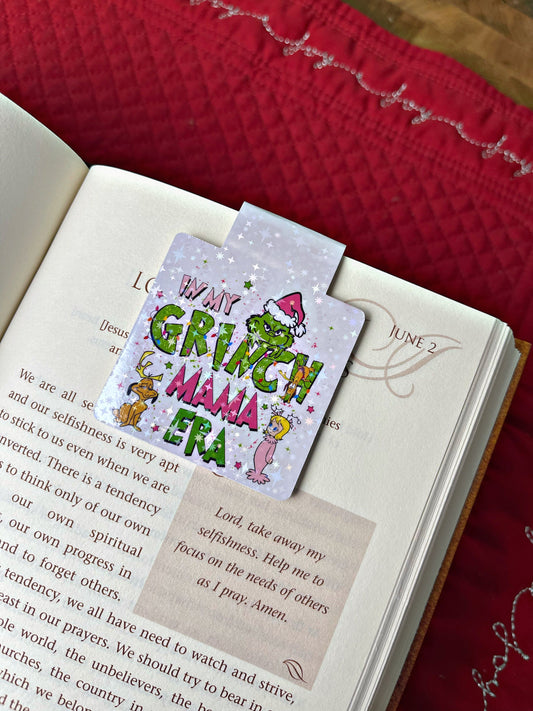 JUNE 2
IN MY
GRINCH
MAMA
ERA
[Jesus
We are all se
and our selfishness is very apt
to stick to us even when we are
nverted. There is a tendency
s to think only of our own
our own spiritual
, our own progress in
nd to forget others.
tendency, we all have need to watch and strive,
east in our prayers. We should try to bear in
ole world, the unbelievers, the
urches, the country in
which we belon
d the
Lord, take away my
selfishness. Help me to
focus on the needs of others
as I pray. Amen.